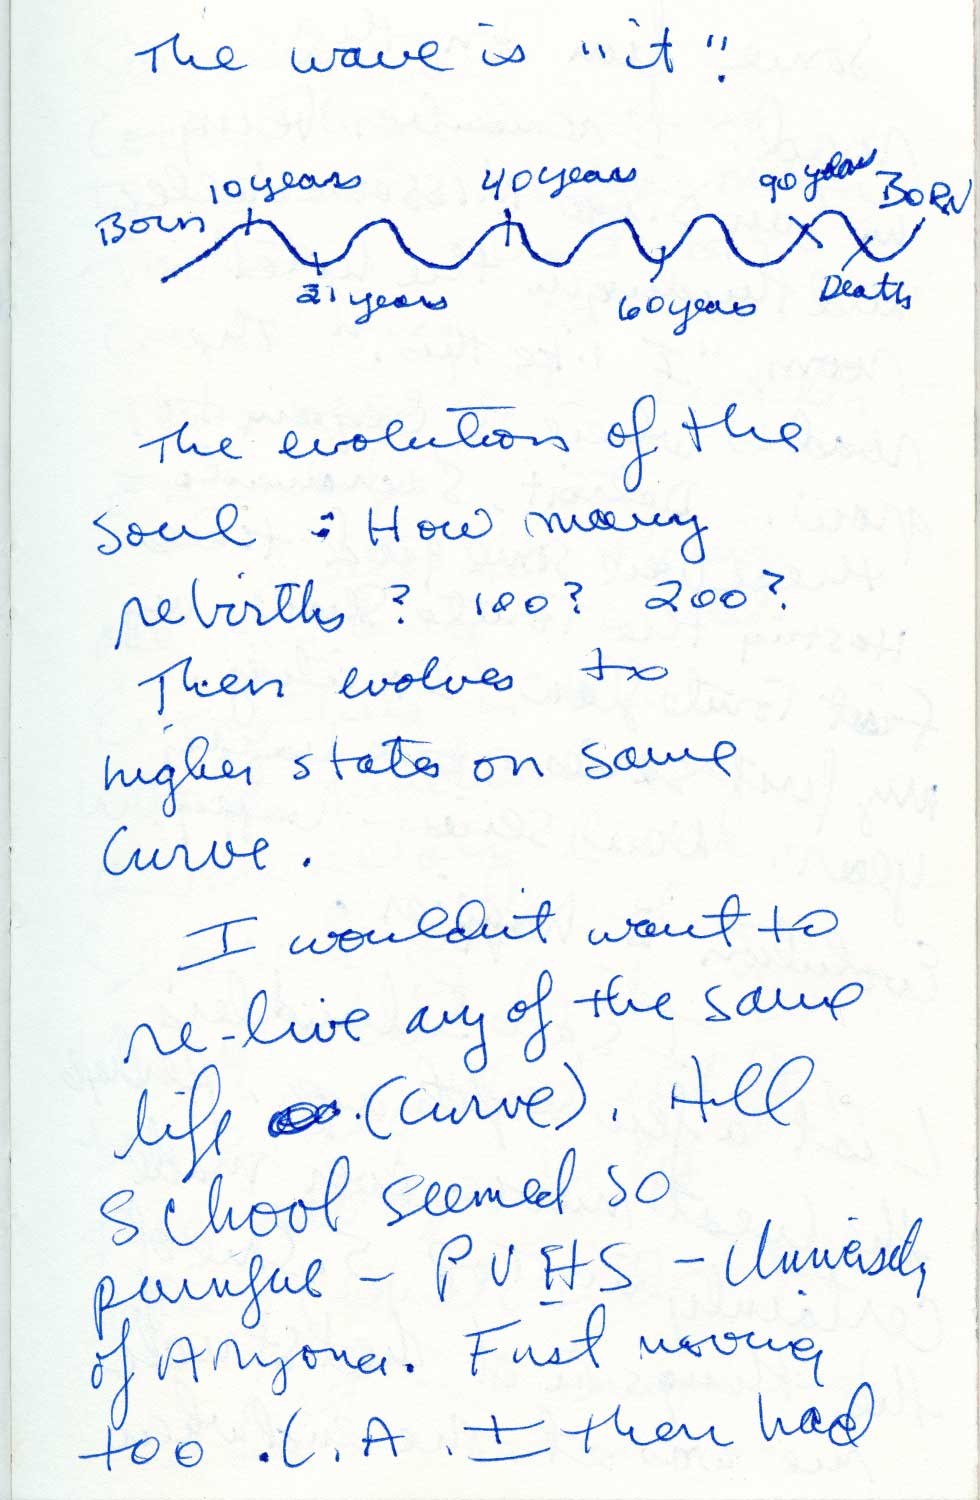 The wave is "it".
10 years 40 years 90 years BORN
Born
21 years 60 years Death
The evolution of the
soul : How many
rebirths? 100? 200?
Then evolves to
higher states on same
Curve.
I wouldn't want to
re-live any of the same
life (curve). All
School seemed so
painful - PVHS - University
of Aryona. Fast moving
too. L.A. I then had